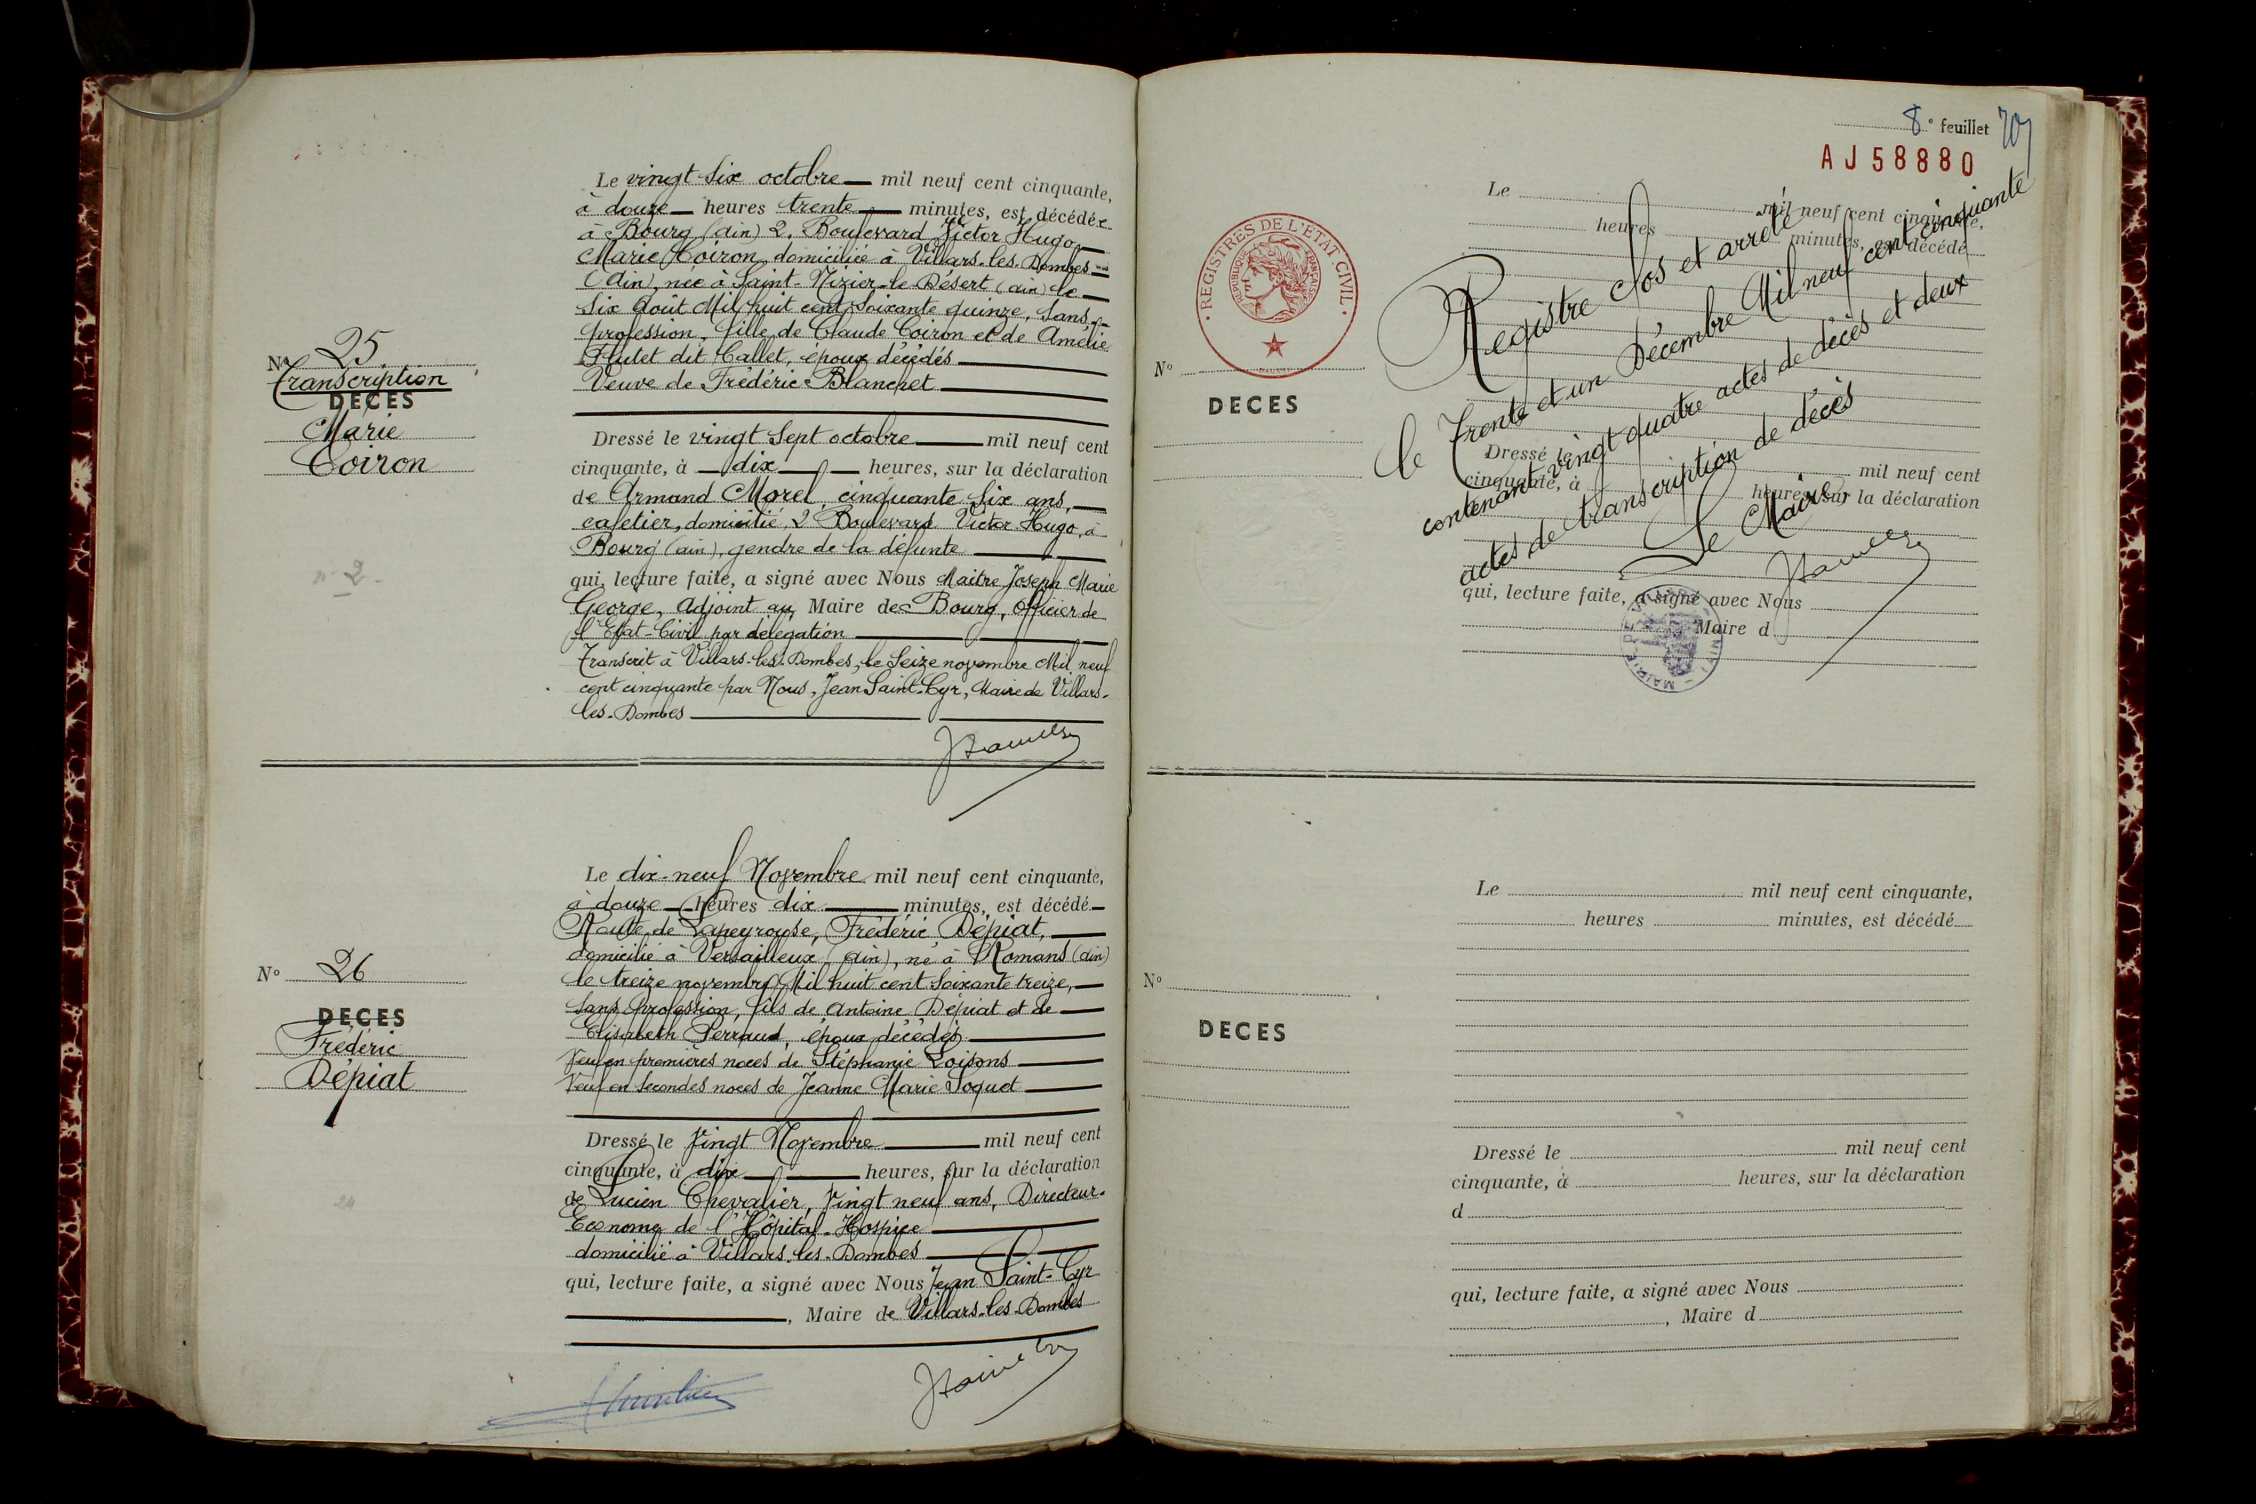 Le vingt six octobre mil neuf cent cinquante,
à douze heures trente minutes, est décédée
à Bourg (ain) 2. Boulevard Victor Hugo,
Marie Coiron, domiciliée à Villars-les-Dombes
(Ain), née à Saint-Nizier-le-Désert (ain) le
six Août Mil huit cent soixante quinze, sans
profession, fille de Claude Coiron et de Amélie
Flutet dit Callet, époux décédés
Veuve de Frédéric Blanchet
N° 25
Transcription
DECES
Marie
Coiron
Dressé le vingt sept octobre mil neuf cent
cinquante, à dix heures, sur la déclaration
de Armand Morel, cinquante six ans,
cafetier, domicilié, 2 Boulevard Victor Hugo, à
Bourg (ain), gendre de la défunte
n° 2
qui, lecture faite, a signé avec Nous Maitre Joseph Marie
George, Adjoint au Maire de Bourg, officier de
l'Etat-Civil par délégation
Transcrit à Villars-les-Dombes, le Seize novembre Mil neuf
cent cinquante par Nous, Jean Saint-Cyr, Maire de Villars-
les-Dombes
Le dix-neuf Novembre mil neuf cent cinquante,
à douze heures dix minutes, est décédé
Route de Lapeyrouse, Frédéric Dépiat,
domicilié à Versailleux (ain), né à Romans (ain)
le treize novembre Mil huit cent soixante treize,
sans profession, fils de Antoine Dépiat et de
Elisabeth Perraud, époux décédés
Veuf en premières noces de Stéphanie Loisons
Veuf en secondes noces de Jeanne Marie Soquet
N° 26
DECES
Frédéric
Dépiat
Dressé le Vingt Novembre mil neuf cent
cinquante, à dix heures, sur la déclaration
de Lucien Chevalier, Vingt neuf ans, Directeur-
Econome de l'Hôpital-Hospice
domicilié à Villars-les-Dombes
24
qui, lecture faite, a signé avec Nous Jean Saint-Cyr
, Maire de Villars-les-Dombes
8e feuillet
AJ58880
REGISTRES DE L'ÉTAT CIVIL
RÉPUBLIQUE FRANÇAISE
Le mil neuf cent cinquante,
heures minutes, est décédé
Registre clos et arrêté
le Trente et un Décembre Mil neuf cent cinquante
contenant vingt quatre actes de décès et deux
actes de transcription de décès
Le Maire,
N°
DECES
Dressé le mil neuf cent
cinquante, à heures, sur la déclaration
qui, lecture faite, a signé avec Nous
Maire d
Le mil neuf cent cinquante,
heures minutes, est décédé
N°
DECES
Dressé le mil neuf cent
cinquante, à heures, sur la déclaration
d
qui, lecture faite, a signé avec Nous
, Maire d